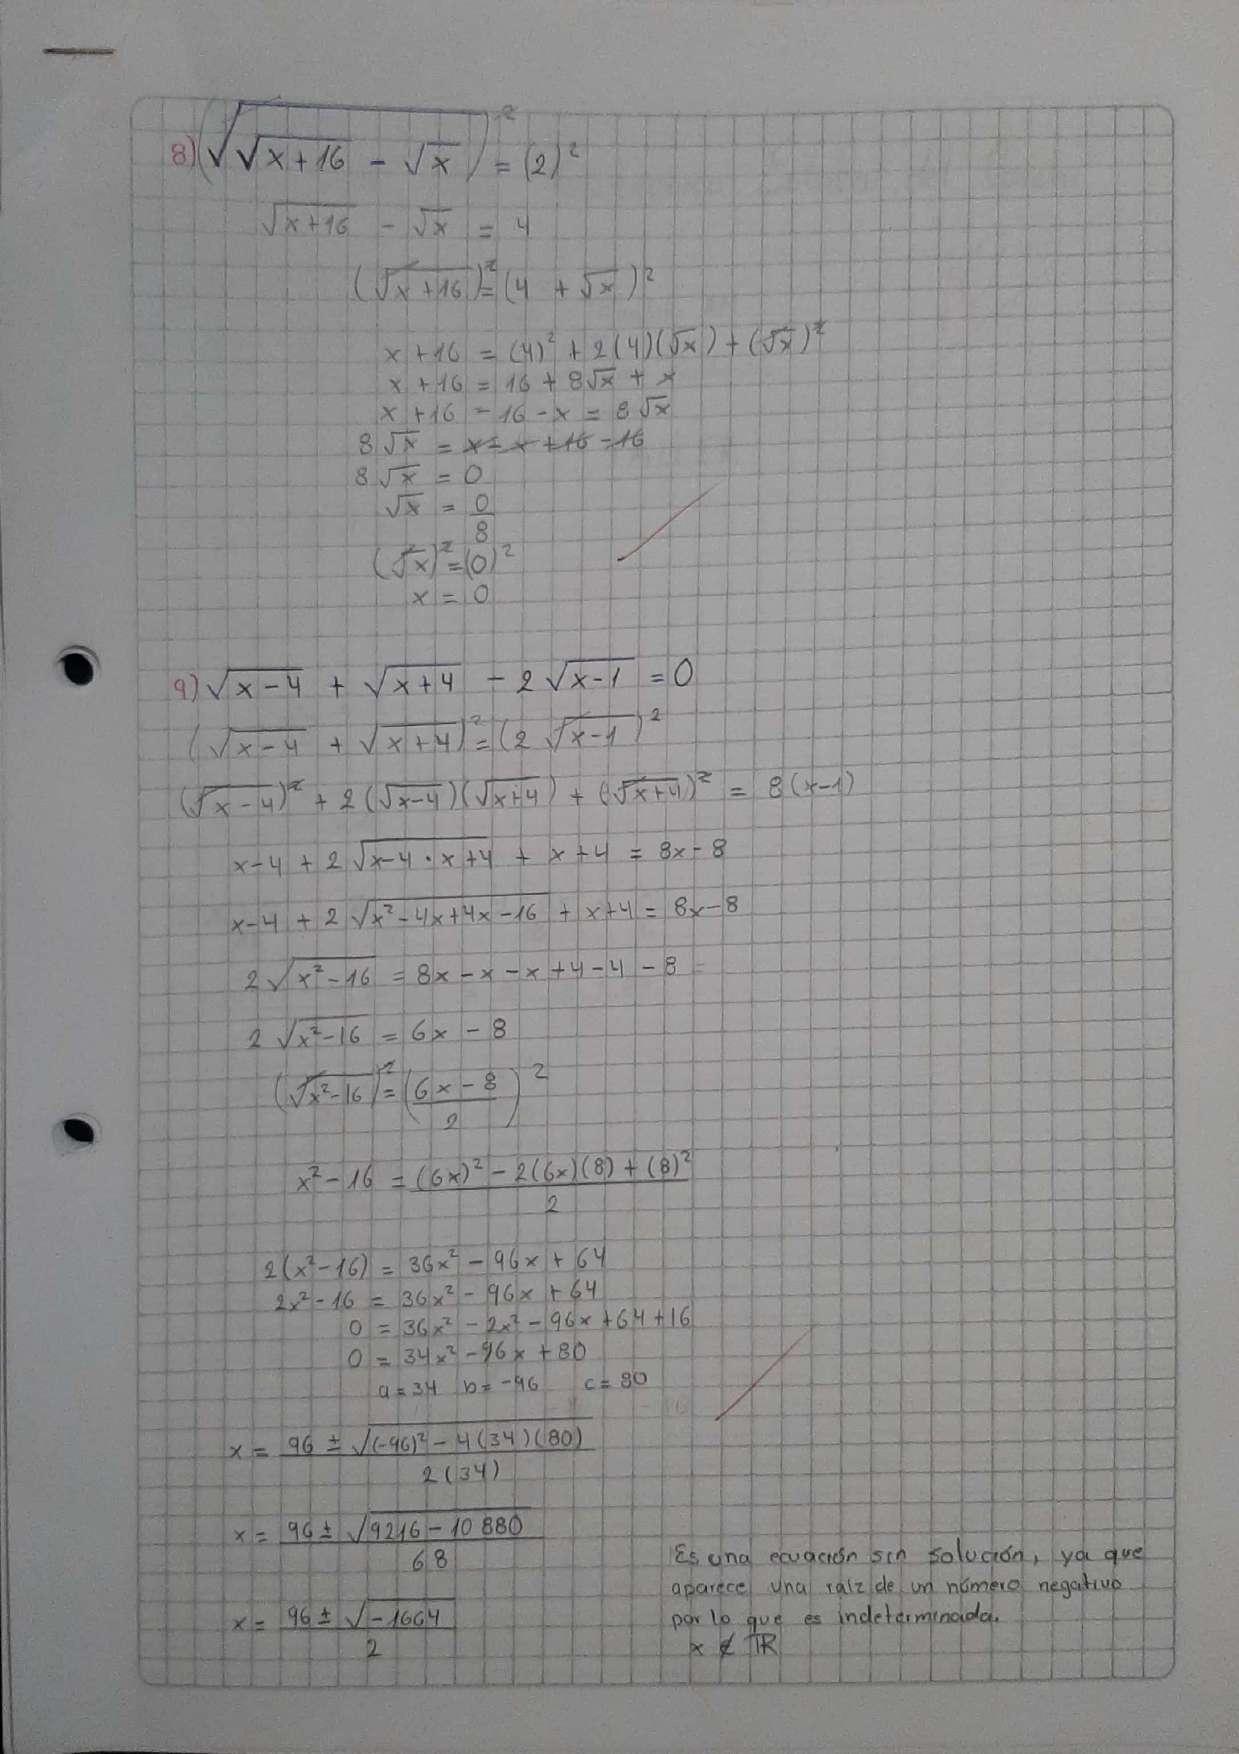 8) (√(√(x+16) - √x))² = (2)²
√(x+16) - √x = 4
(√(x+16))² = (4 + √x)²
x+16 = (4)² + 2(4)(√x) + (√x)²
x+16 = 16 + 8√x + x
x+16 - 16 - x = 8√x
8√x = x - x + 16 - 16
8√x = 0
√x = 0/8
(√x)² = (0)²
x = 0
9) √(x-4) + √(x+4) - 2√(x-1) = 0
(√(x-4) + √(x+4))² = (2√(x-1))²
(√(x-4))² + 2(√(x-4))(√(x+4)) + (√(x+4))² = 8(x-1)
x-4 + 2√(x-4·x+4) + x+4 = 8x-8
x-4 + 2√(x²-4x+4x-16) + x+4 = 8x-8
2√(x²-16) = 8x-x-x+4-4-8
2√(x²-16) = 6x-8
(√(x²-16))² = ((6x-8)/2)²
x²-16 = ((6x)²-2(6x)(8)+(8)²)/2
2(x²-16) = 36x²-96x+64
2x²-16 = 36x²-96x+64
0 = 36x²-2x²-96x+64+16
0 = 34x²-96x+80
a=34 b=-96 c=80
x = (96±√((-96)²-4(34)(80)))/2(34)
x = (96±√(9216-10880))/68
x = (96±√(-1664))/2
Es una ecuación sin solución, ya que
aparece una raíz de un número negativo
por lo que es indeterminada.
x ∉ ℝ